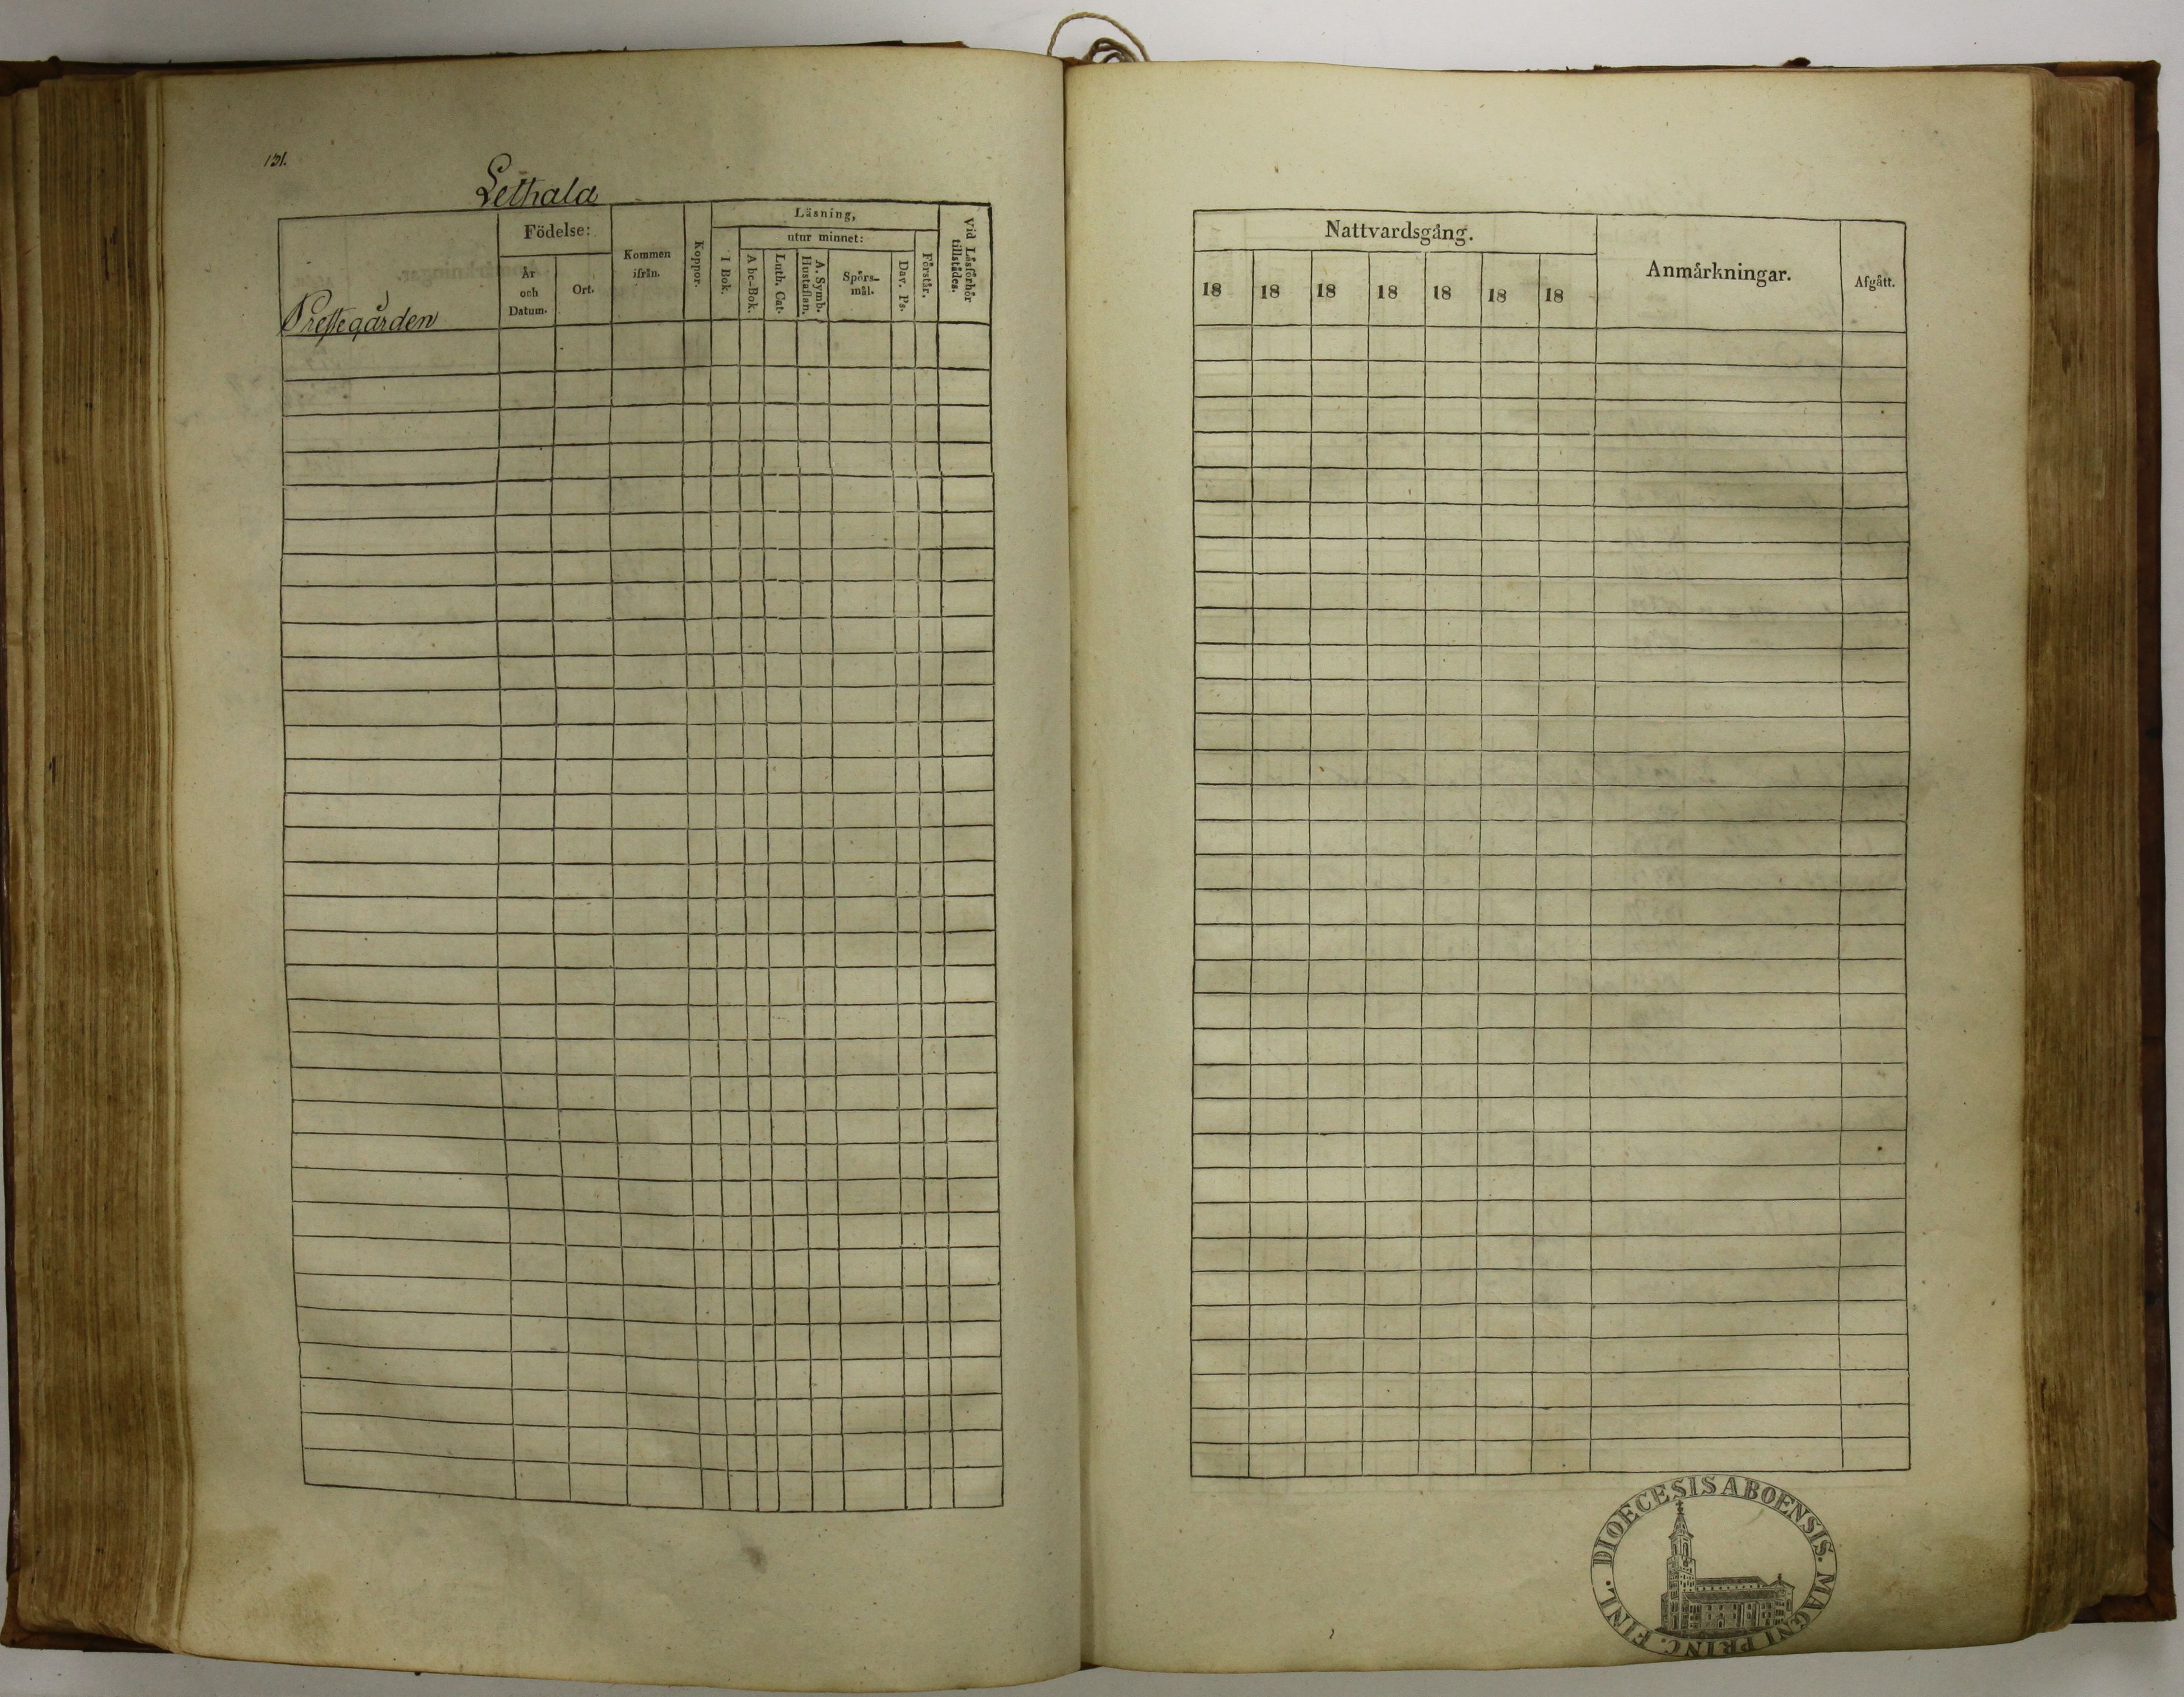 131.
Lethala
Prestegården
Födelse:
År
och
Datum.
Ort.
Kommen
ifrån.
Koppor.
Läsning,
I Bok.
utur minnet:
A bc-Bok.
Luth. Cat.
A. Symb.
Hustaflan.
Spörs-
mål.
Dav. Ps.
Förstår.
Vid Läsförhör
tillstädes.
Nattvardsgång.
18 18 18 18 18 18 18
Anmärkningar.
Afgått.
DIOECESIS ABOENSIS. MAGNI PRINC. FINL.